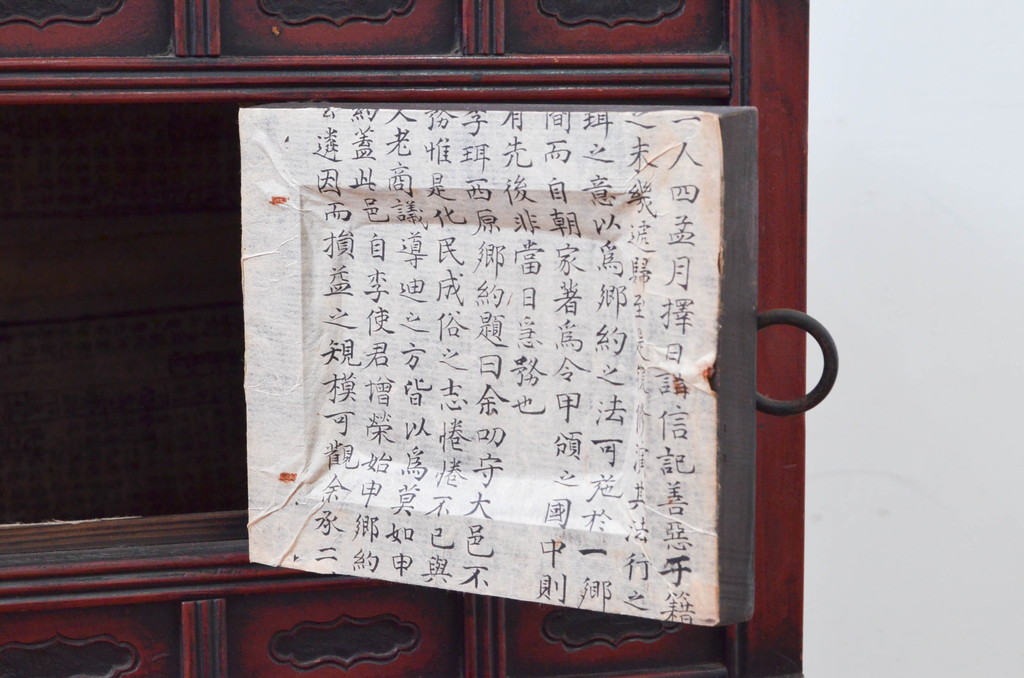 一人四孟月擇日講信記善惡于籍
之末幾遞歸至其法行之
珥之意以爲鄉約之法可施於一鄉
間而自朝家著爲令甲頒之國中則
有先後非當日急務也
李珥西原鄉約題曰余叨守大邑不
務惟是化民成俗之志惓惓不已與
人老商議導迪之方皆以爲莫如申
約蓋此邑自李使君增榮始申鄉約
公遴因而損益之規模可觀余承二